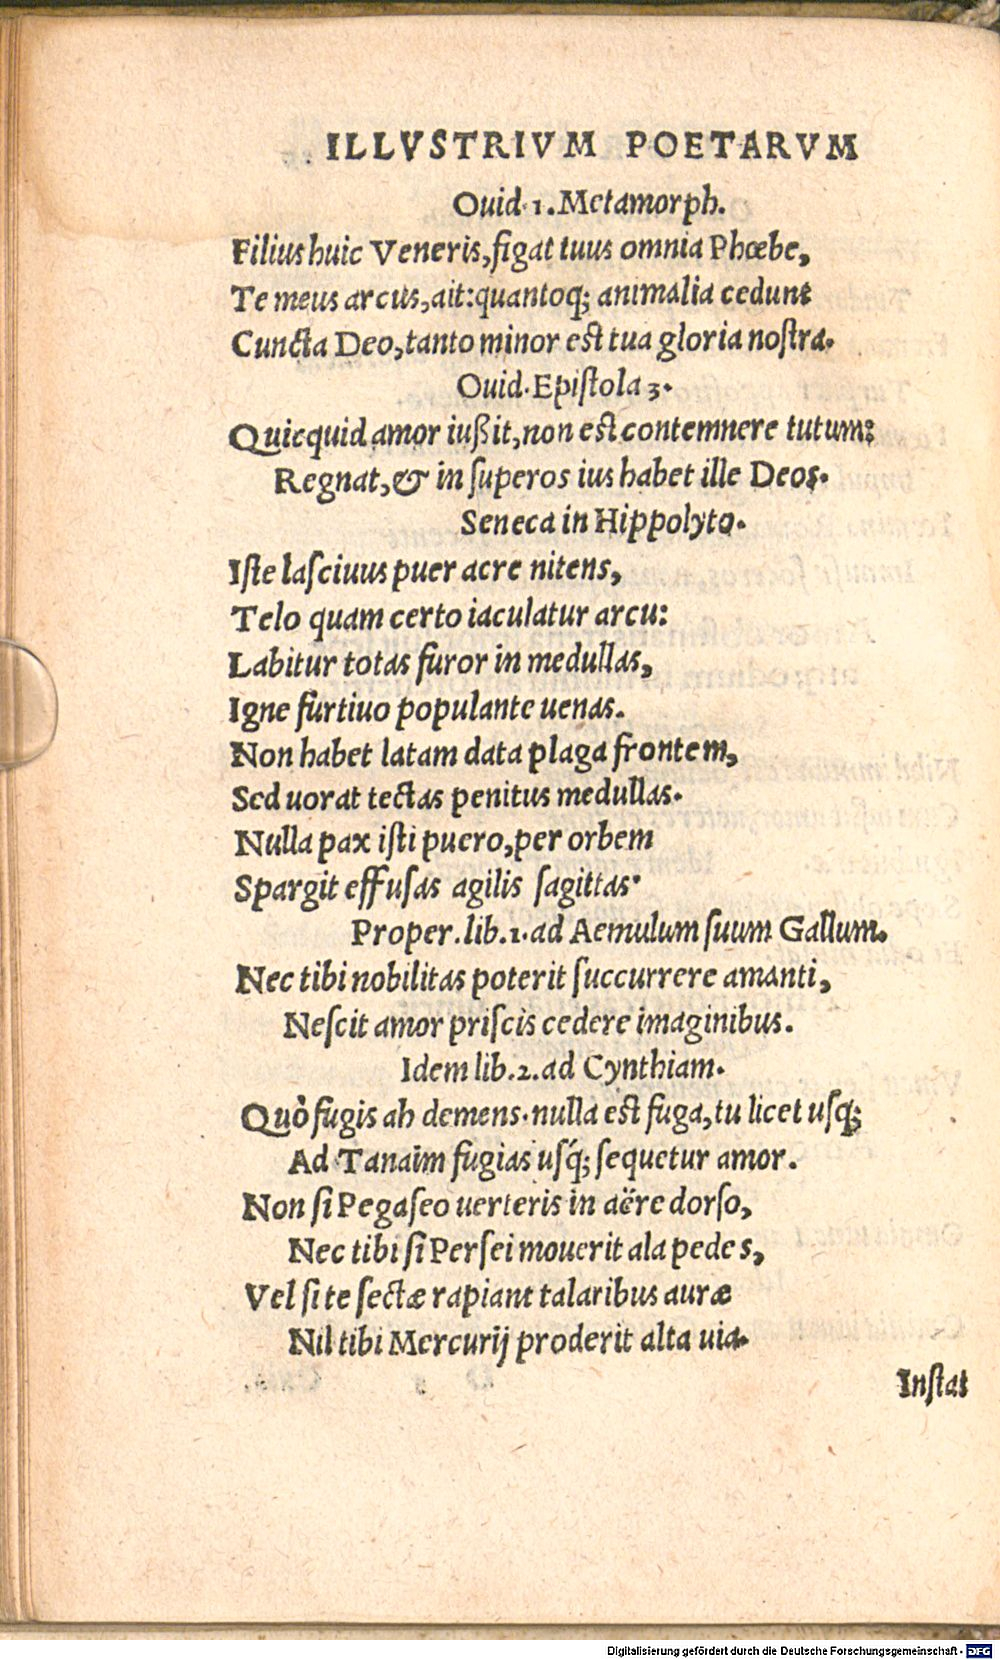 ILLVSTRIVM POETARVM
Ouid. 1. Metamorph.
Filius huic Veneris, figat tuus omnia Phœbe,
Te meus arcus, ait: quantoq; animalia cedunt
Cuncta Deo, tanto minor est tua gloria nostra.
Ouid. Epistola 3.
Quicquid amor iußit, non est contemnere tutum:
Regnat, & in superos ius habet ille Deos.
Seneca in Hippolyto.
Iste lasciuus puer acre nitens,
Telo quam certo iaculatur arcu:
Labitur totas furor in medullas,
Igne furtiuo populante uenas.
Non habet latam data plaga frontem,
Sed uorat tectas penitus medullas.
Nulla pax isti puero, per orbem
Spargit effusas agilis sagittas.
Proper. lib. 1. ad Aemulum suum Gallum.
Nec tibi nobilitas poterit succurrere amanti,
Nescit amor priscis cedere imaginibus.
Idem lib. 2. ad Cynthiam.
Quò fugis ah demens. nulla est fuga, tu licet usq;
Ad Tanaim fugias usq́; sequetur amor.
Non si Pegaseo uerteris in aëre dorso,
Nec tibi si Persei mouerit ala pedes,
Vel si te sectæ rapiant talaribus auræ
Nil tibi Mercurij proderit alta uia.
Instat
Digitalisierung gefördert durch die Deutsche Forschungsgemeinschaft - DFG